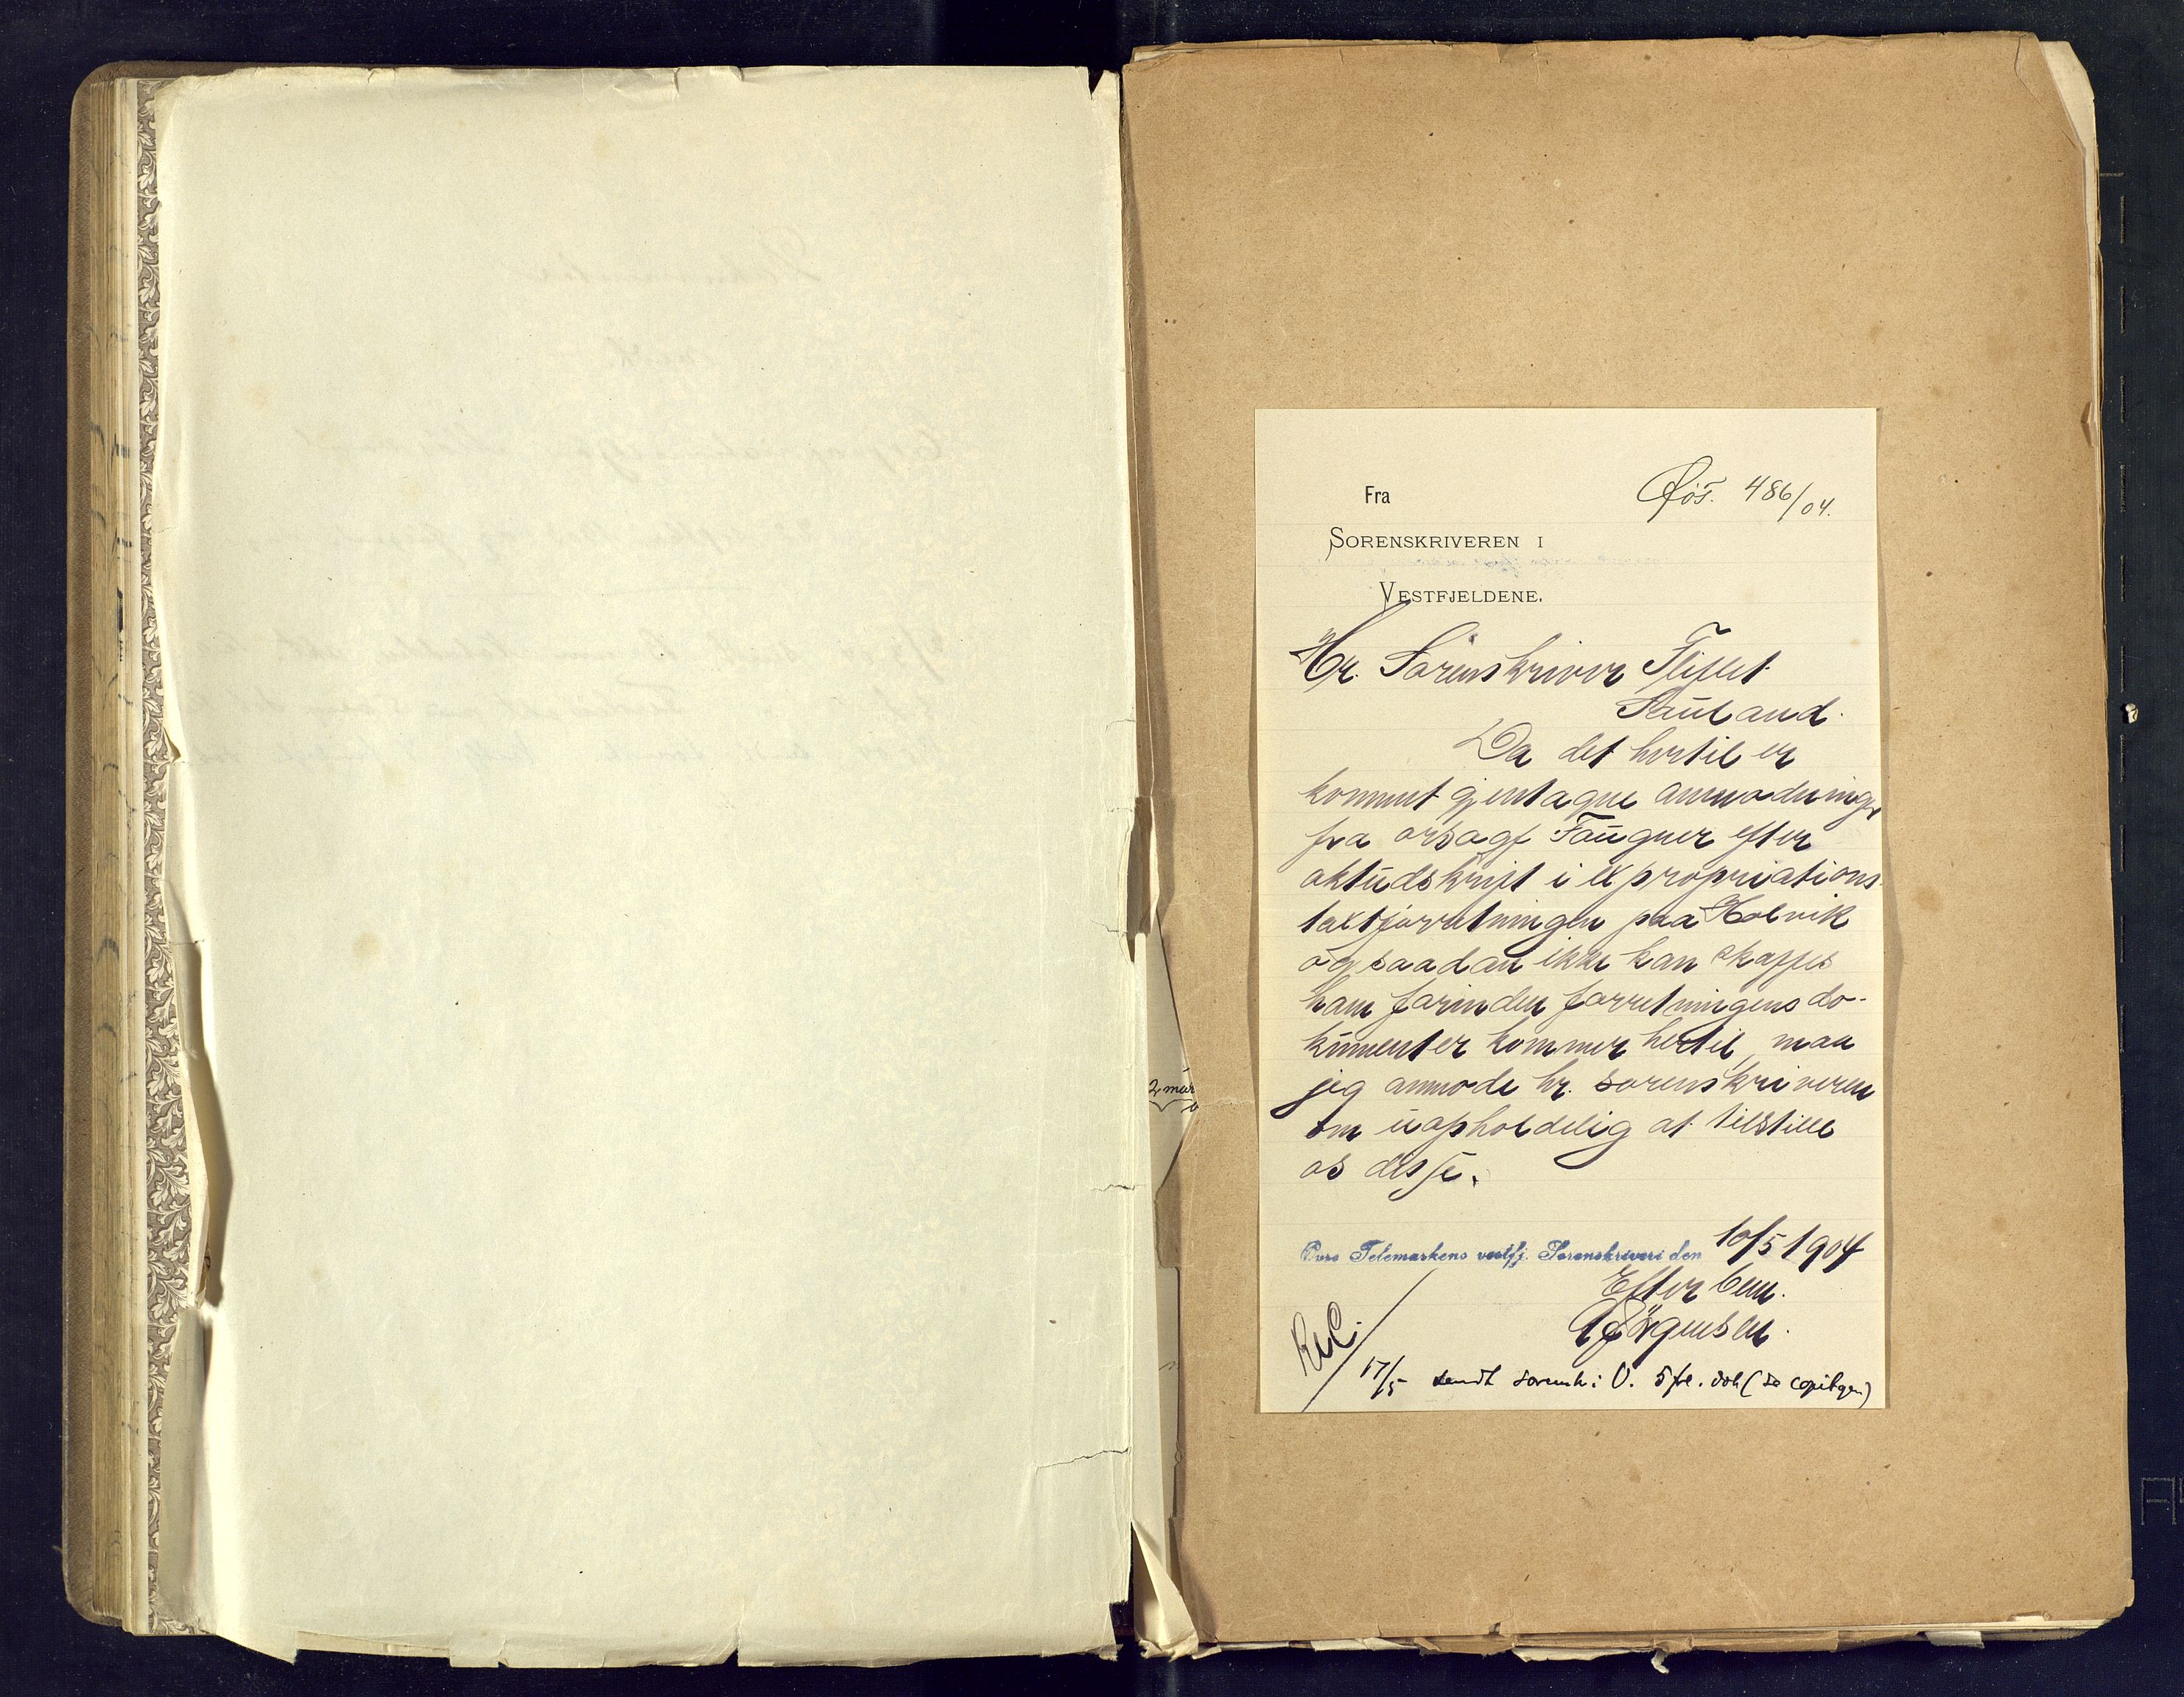 Fra
SORENSKRIVEREN I
VESTFJELDENE.
486/04.
Hr. Sorenskriver Fliflet
Sauland.
Da det hertil er
kommet gjentagne anmodninger
fra orsagf Faugner efter
aktudskrift i expropriations
taxtforretningen paa Holvik
og saadan ikke kan skaffes
ham forinden forretningens do-
kumenter kommer hertil, maa
jeg anmode hr. sorenskriveren
om uopholdelig at tilstille
os disse.
Øvre Telemarkens vestfj. Sorenskriveri den 10/5 1904
Efter bem.
Jørgensen.
17/5 sendt sorenskr i V. 5 fre. dok (se copibgen)
2 mar